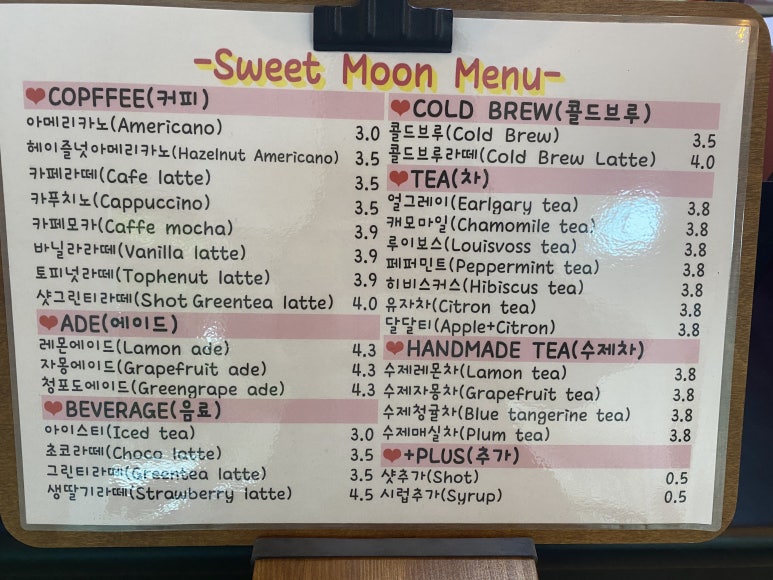 -Sweet Moon Menu-
❤COPFFEE(커피)
아메리카노(Americano) 3.0
헤이즐넛아메리카노(Hazelnut Americano) 3.5
카페라떼(Cafe latte) 3.5
카푸치노(Cappuccino) 3.5
카페모카(Caffe mocha) 3.9
바닐라라떼(Vanilla latte) 3.9
토피넛라떼(Tophenut latte) 3.9
샷그린티라떼(Shot Greentea latte) 4.0
❤ADE(에이드)
레몬에이드(Lamon ade) 4.3
자몽에이드(Grapefruit ade) 4.3
청포도에이드(Greengrape ade) 4.3
❤BEVERAGE(음료)
아이스티(Iced tea) 3.0
초코라떼(Choco latte) 3.5
그린티라떼(Greentea latte) 3.5
생딸기라떼(Strawberry latte) 4.5
❤COLD BREW(콜드브루)
콜드브루(Cold Brew) 3.5
콜드브루라떼(Cold Brew Latte) 4.0
❤TEA(차)
얼그레이(Earlgary tea) 3.8
캐모마일(Chamomile tea) 3.8
루이보스(Louisvoss tea) 3.8
페퍼민트(Peppermint tea) 3.8
히비스커스(Hibiscus tea) 3.8
유자차(Citron tea) 3.8
달달티(Apple+Citron) 3.8
❤HANDMADE TEA(수제차)
수제레몬차(Lamon tea) 3.8
수제자몽차(Grapefruit tea) 3.8
수제청귤차(Blue tangerine tea) 3.8
수제매실차(Plum tea) 3.8
❤+PLUS(추가)
샷추가(Shot) 0.5
시럽추가(Syrup) 0.5